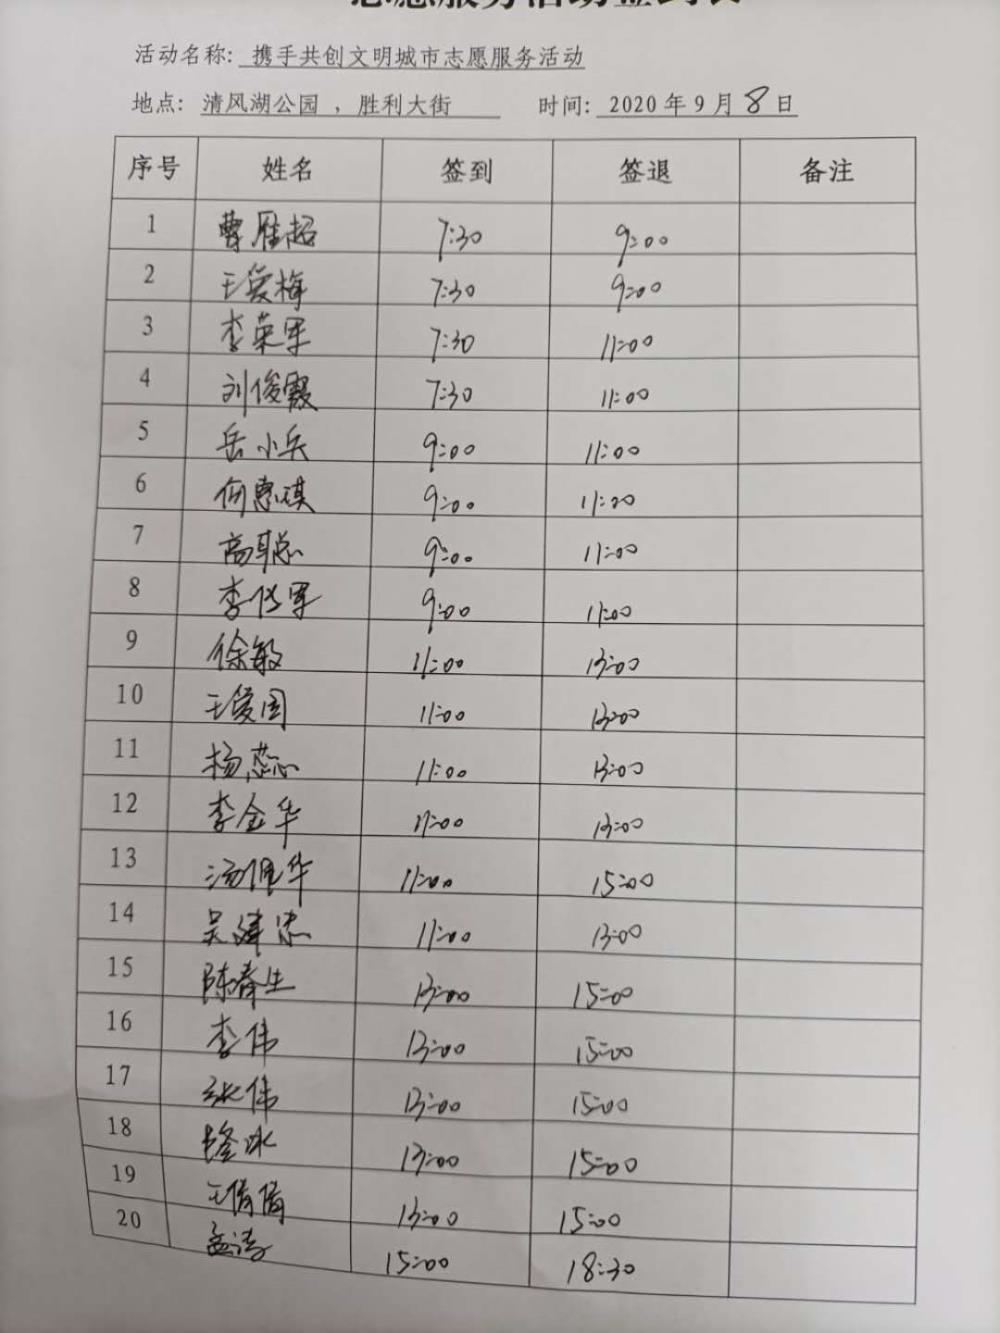 志愿服务活动签到表
活动名称: 携手共创文明城市志愿服务活动
地点: 清风湖公园 , 胜利大街 时间: 2020 年 9 月 8 日
序号 姓名 签到 签退 备注
1 曹雁超 7:30 9:00
2 王爱梅 7:30 9:00
3 李荣军 7:30 11:00
4 刘俊霞 7:30 11:00
5 岳小兵 9:00 11:00
6 何惠琪 9:00 11:20
7 高聪 9:00 11:00
8 李传军 9:00 11:00
9 徐敏 11:00 13:00
10 王爱国 11:00 13:00
11 杨蕊 11:00 13:00
12 李金华 11:00 13:00
13 11:00 15:00
14 吴建忠 11:00 13:00
15 陈春生 13:00 15:00
16 李伟 13:00 15:00
17 张伟 13:00 15:00
18 13:00 15:00
19 王倩倩 13:00 15:00
20 孟涛 15:00 18:30